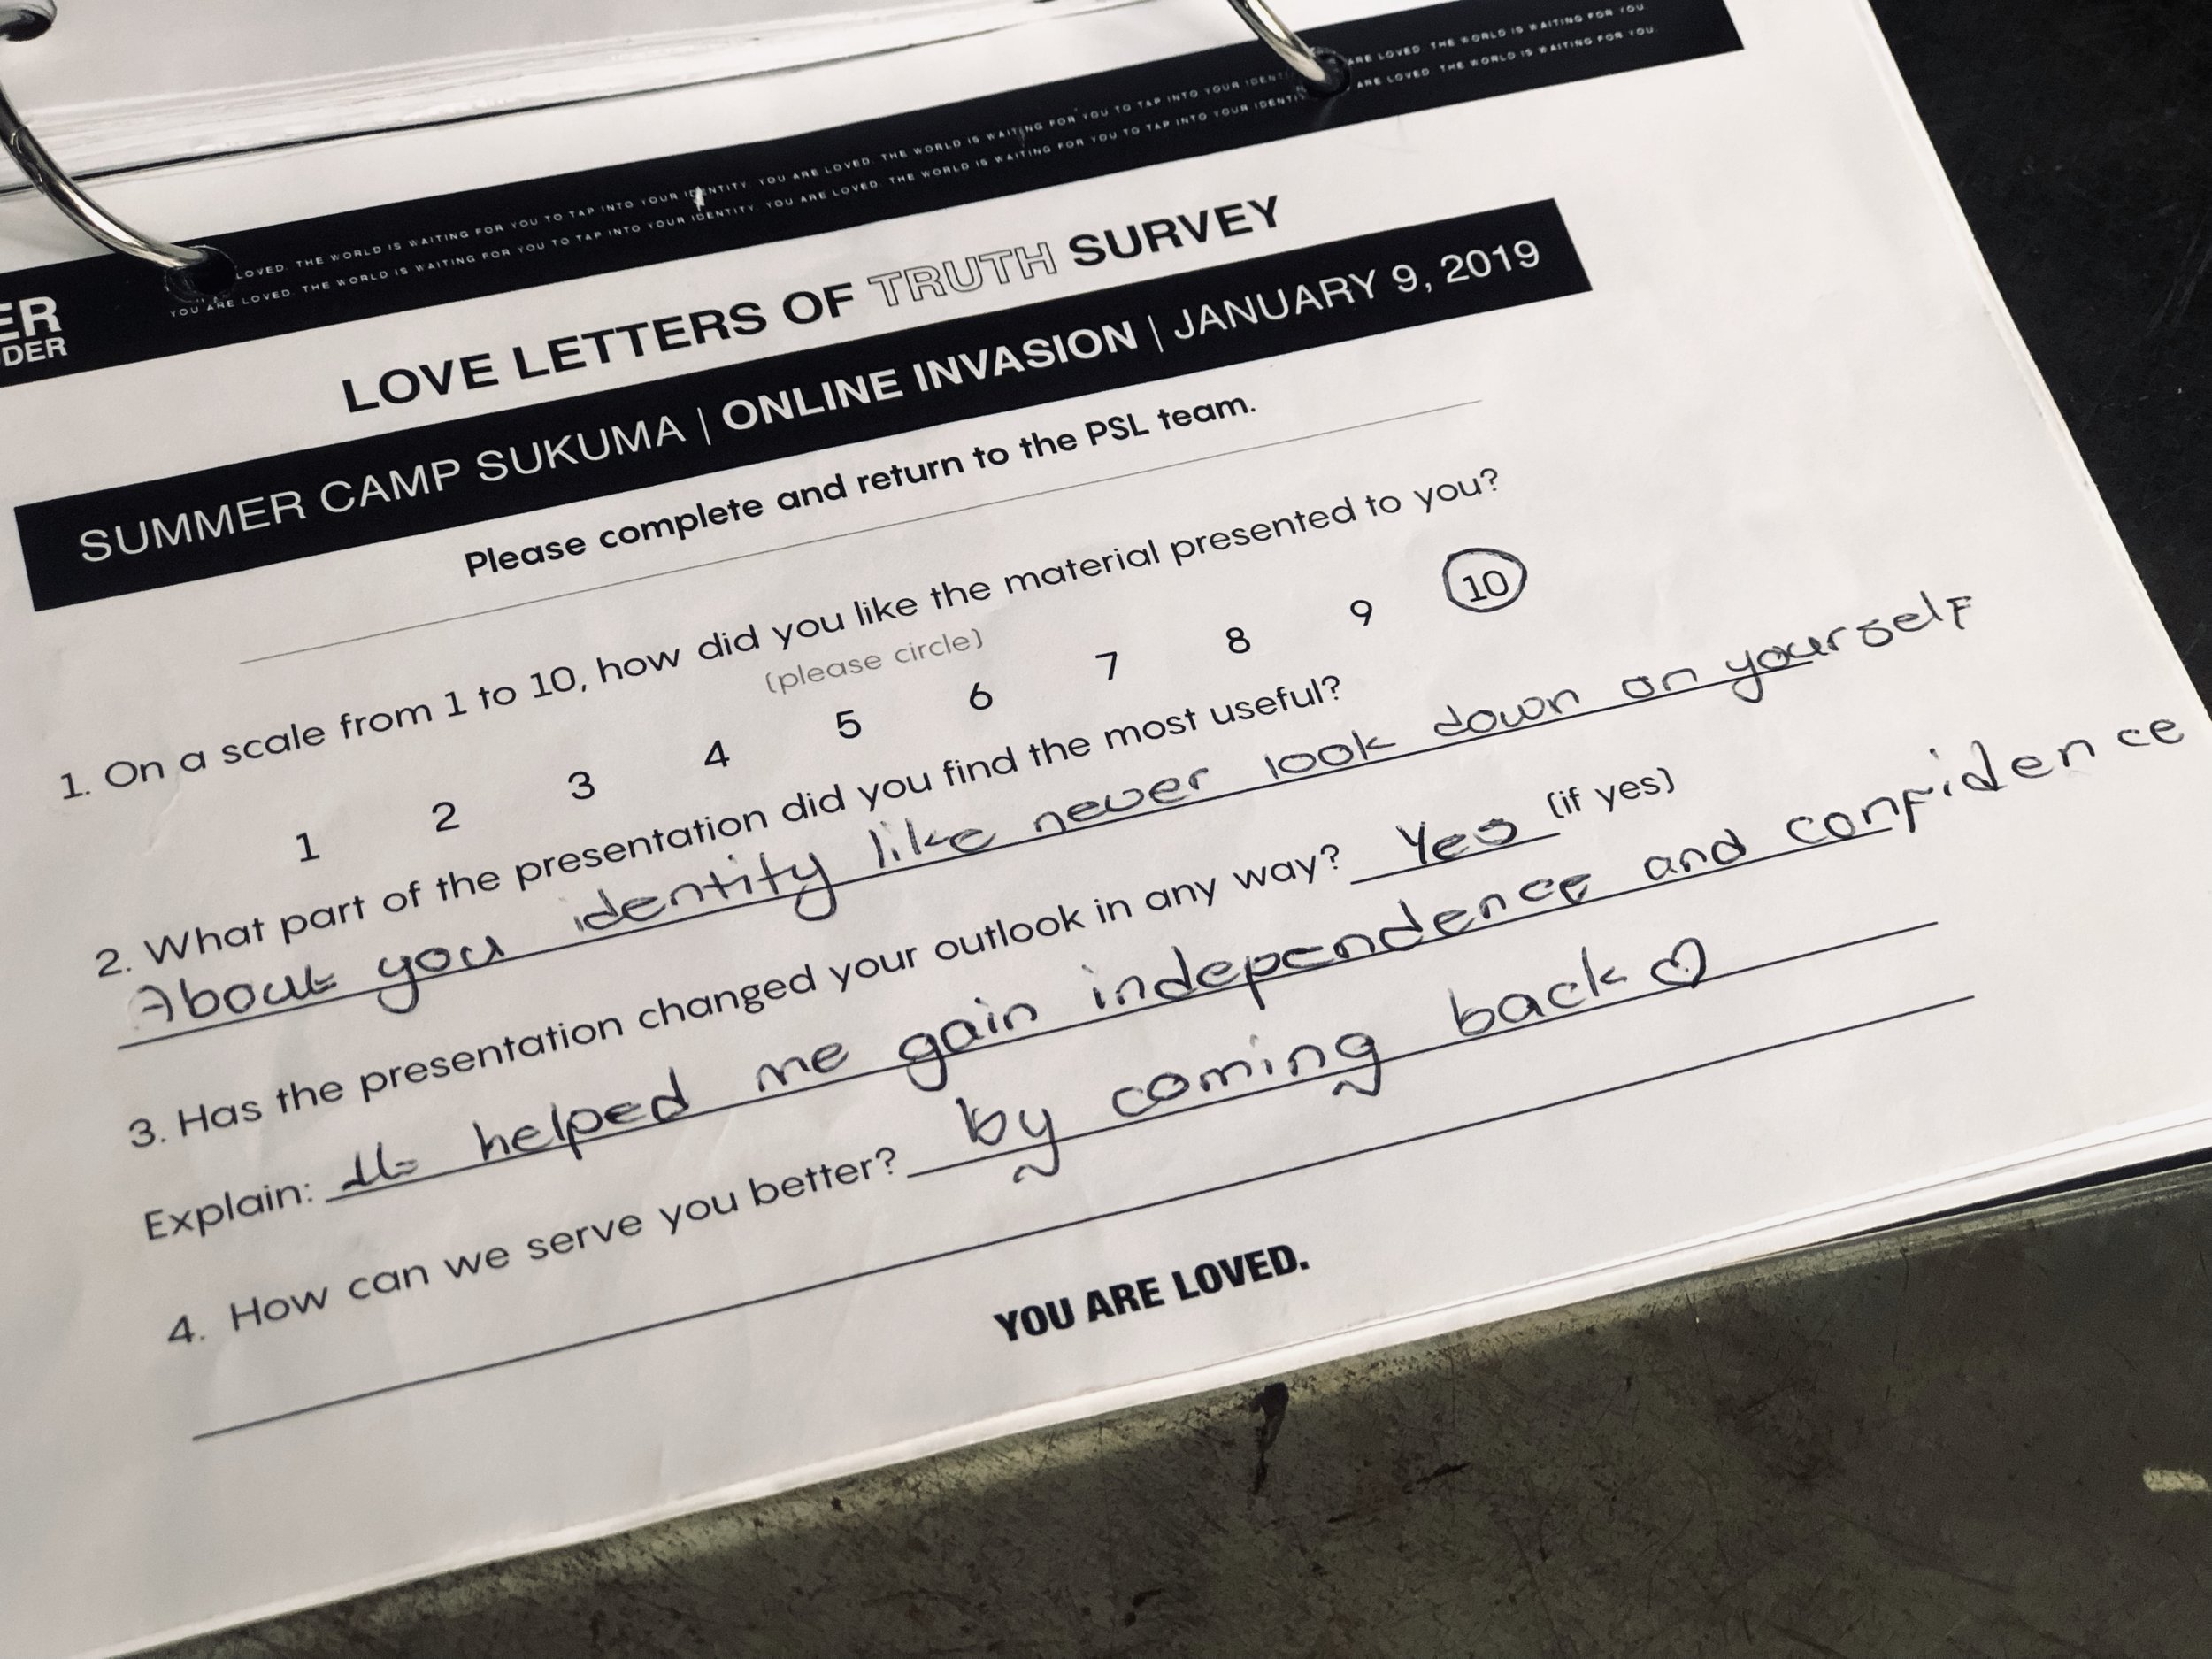 LOVED. THE WORLD IS WAITING FOR YOU TO TAP INTO YOUR IDENTITY. YOU ARE LOVED. THE WORLD IS WAITING FOR YOU TO TAP INTO YOUR ARE LOVED. THE WORLD IS WAITING FOR YOU
YOU ARE LOVED. THE WORLD IS WAITING FOR YOU TO TAP INTO YOUR IDENTITY. YOU ARE LOVED. THE WORLD IS WAITING FOR YOU TO TAP INTO YOUR ARE LOVED. THE WORLD IS WAITING FOR YOU.
ER
DER
LOVE LETTERS OF TRUTH SURVEY
SUMMER CAMP SUKUMA | ONLINE INVASION | JANUARY 9, 2019
Please complete and return to the PSL team.
1. On a scale from 1 to 10, how did you like the material presented to you?
(please circle)
1 2 3 4 5 6 7 8 9 10
2. What part of the presentation did you find the most useful?
About you identity like never look down on yourself
3. Has the presentation changed your outlook in any way? Yes (if yes)
Explain: It helped me gain independence and confidence
4. How can we serve you better? by coming back ♡
YOU ARE LOVED.